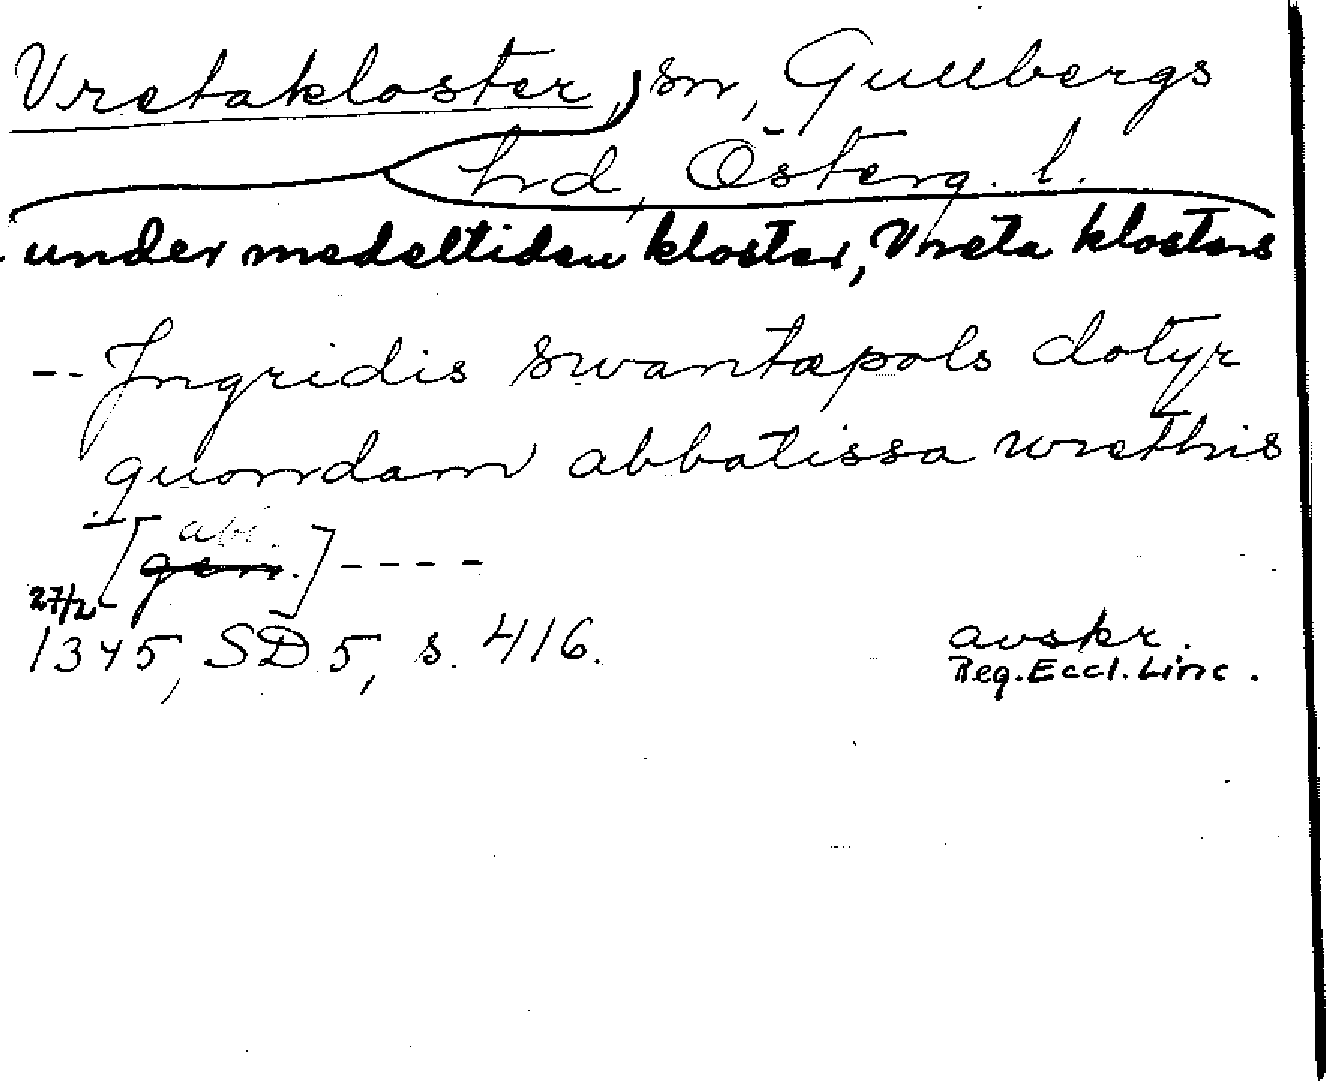 Vretakloster, sn, Gullbergs
hrd, Österg. l.
under medeltiden kloster, Vreta klosters
-- Ingridis swantæpols dotyr
quondam abbatissa wrethis
[abl. gen.] ----
27/2
1345, SD 5, s. 416.
avskr.
Reg. Eccl. Linc.